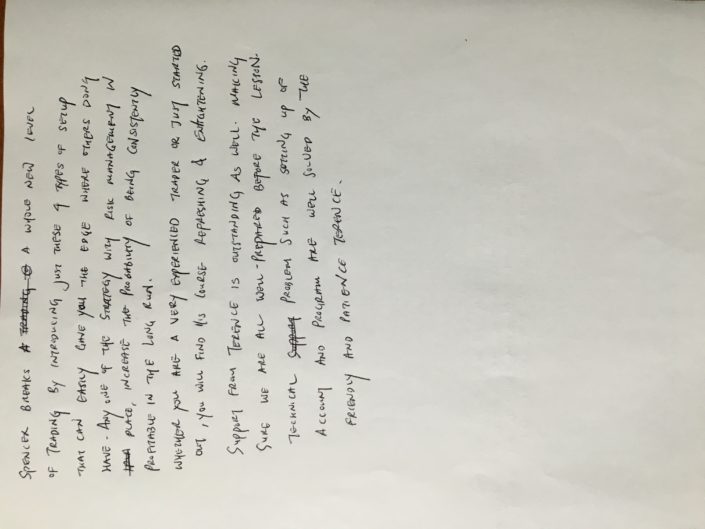 SPENCER BREAKS A WHOLE NEW LEVEL
OF TRADING BY INTRODUCING JUST THESE 4 TYPES OF SETUP
THAT CAN EASILY GAVE YOU THE EDGE WHERE OTHERS DONG
HAVE. ANY ONE OF THE STRATEGY WITH RISK MANAGEMENT IN
PLACE, INCREASE THE PROBABILITY OF BEING CONSISTENTLY
PROFITABLE IN THE LONG RUN.
WHETHER YOU ARE A VERY EXPERIENCED TRADER OR JUST STARTED
OUT, YOU WILL FIND HIS COURSE REFRESHING & ENLIGHTENING.
SUPPORT FROM TERENCE IS OUTSTANDING AS WELL. MAKING
SURE WE ARE ALL WELL-PREPARED BEFORE THE LESSON.
TECHNICAL PROBLEM SUCH AS SETTING UP OF
ACCOUNT AND PROGRAM ARE WELL SOLVED BY THE
FRIENDLY AND PATIENCE TERENCE.